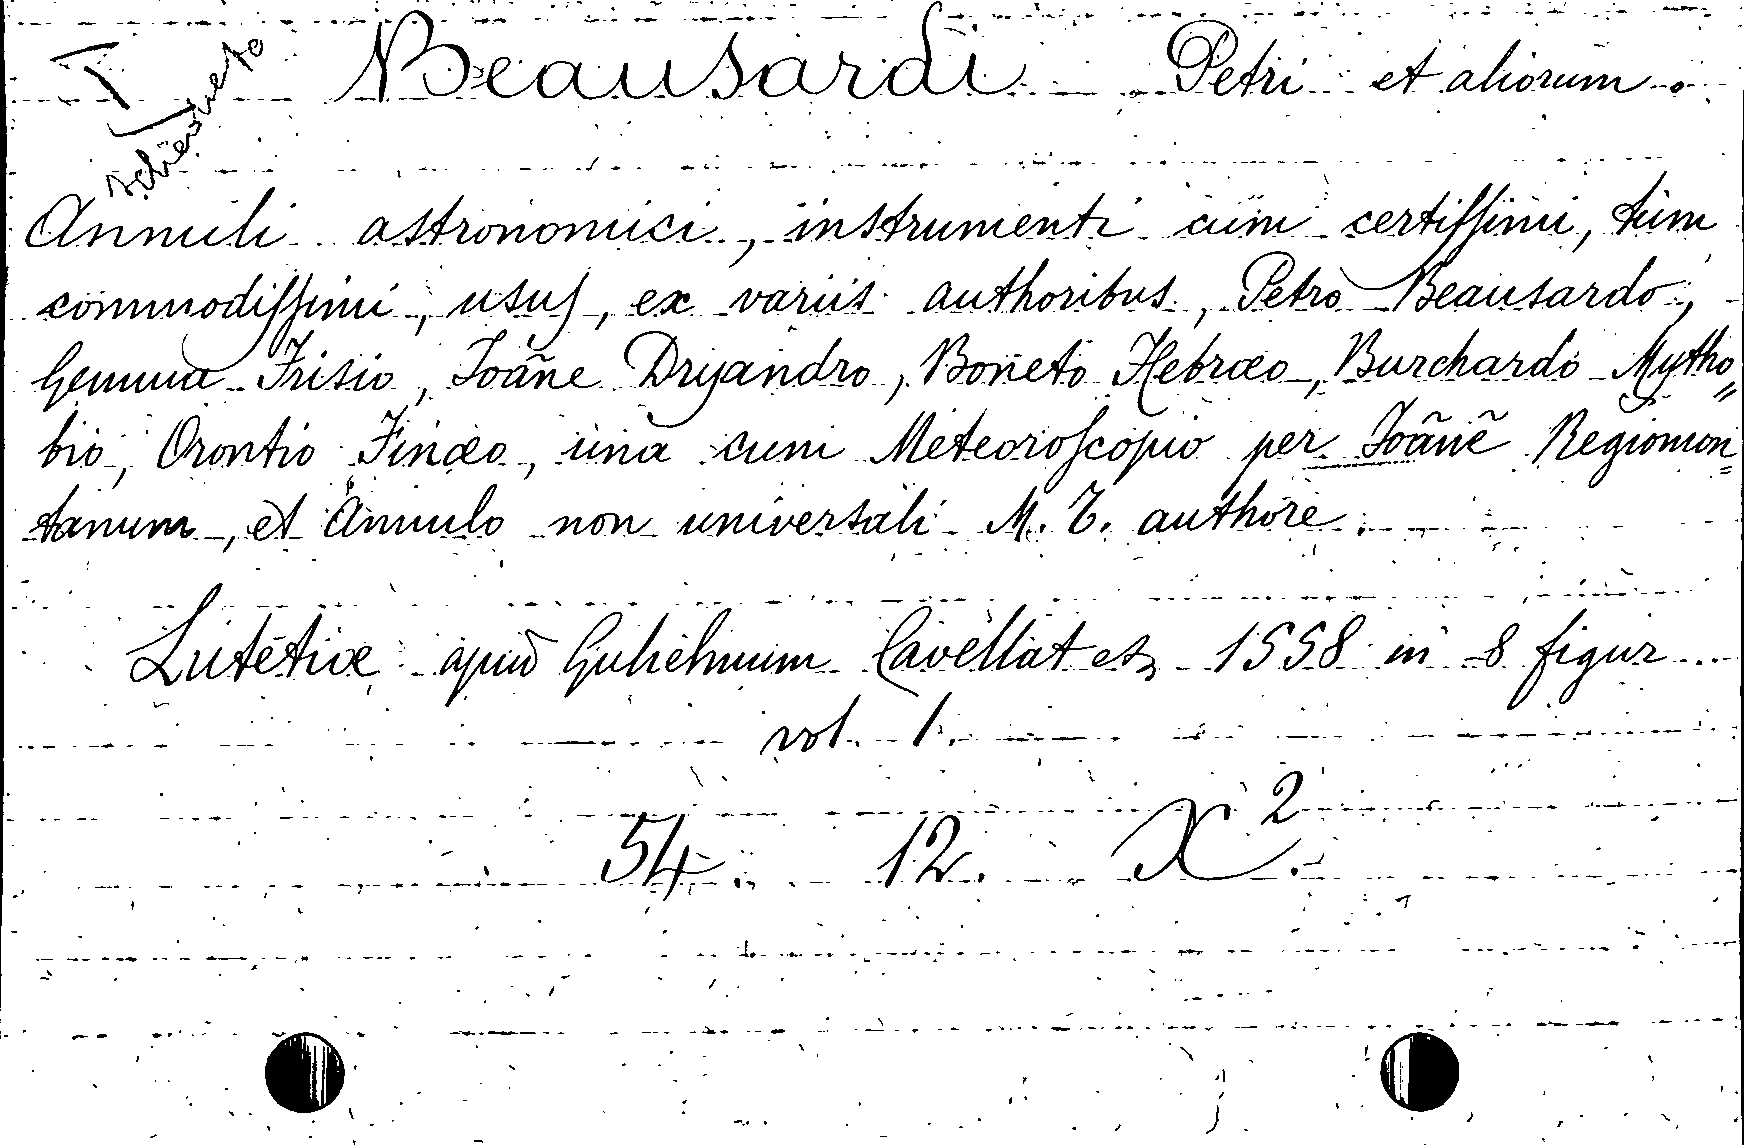 I
schieneto
Beausardi Petri et aliorum.
Annuli astronomici, instrumenti cum certiſſimi, tum
commodiſſimi, usuſ, ex variis authoribus, Petro Beausardo,
Gemma Frisio, Ioãne Dryandro, Boneto Hebræo, Burchardo Mytho„
bio, Orontio Finæo, una cum Meteoroſcopio per Ioãnẽ Regiomon=
tanum, et Annulo non universali M. T. authore.
Lutetiæ apud Gulielmum Cavellat etz 1558 in 8 figur...
vol. 1.
54. 12. X 2.